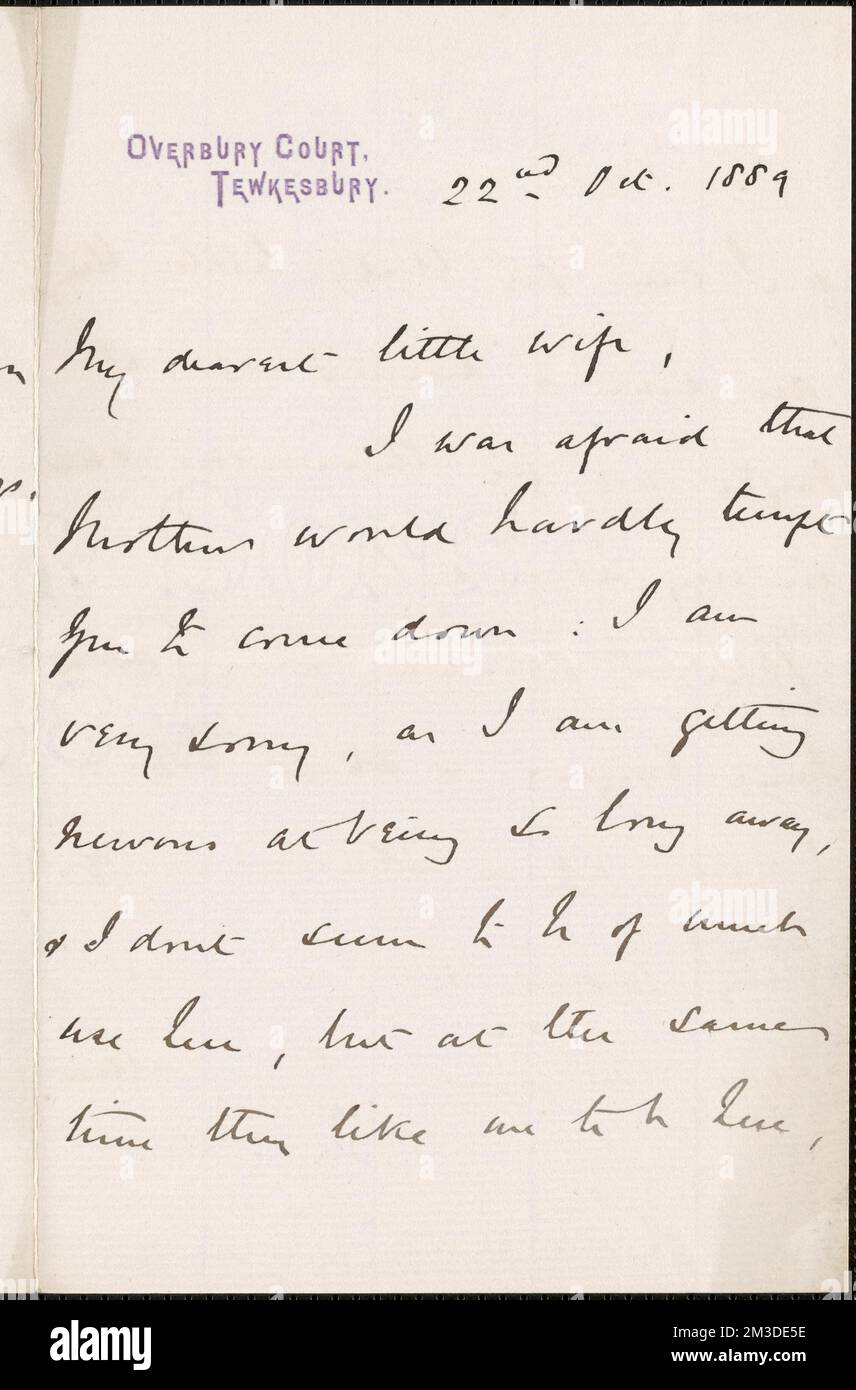 OVERBURY COURT,
TEWKESBURY.
22nd Oct. 1889
My dearest little wife,
I was afraid that
Mothers would hardly tempt
you to come down : I am
very sorry, as I am getting
nervous at being so long away,
& I dont seem to be of much
use here, but at the same
time they like me to be here,
alamy
Image ID: 2M3DE5E
www.alamy.com